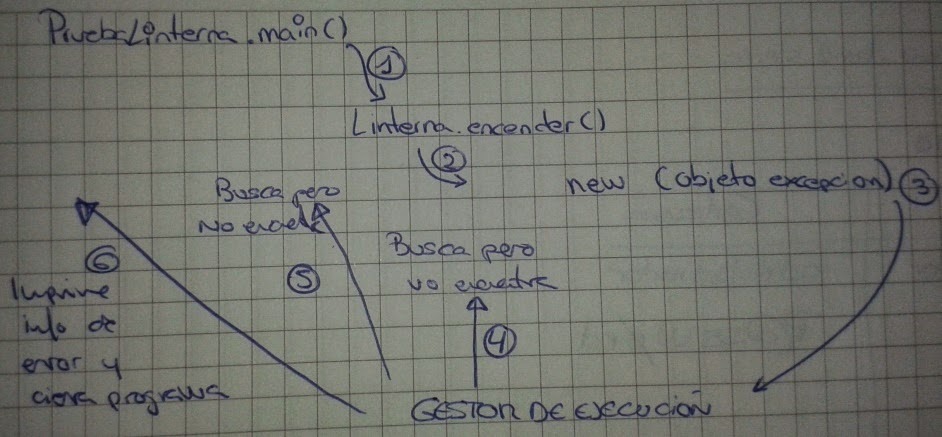 PruebaLinterna.main()
1
Linterna.encender()
2
new (objeto excepcion) 3
Busca pero
No
Busca pero
no
6
5
Imprime
info de
error y
cierra programa
4
GESTOR DE EJECUCIÓN